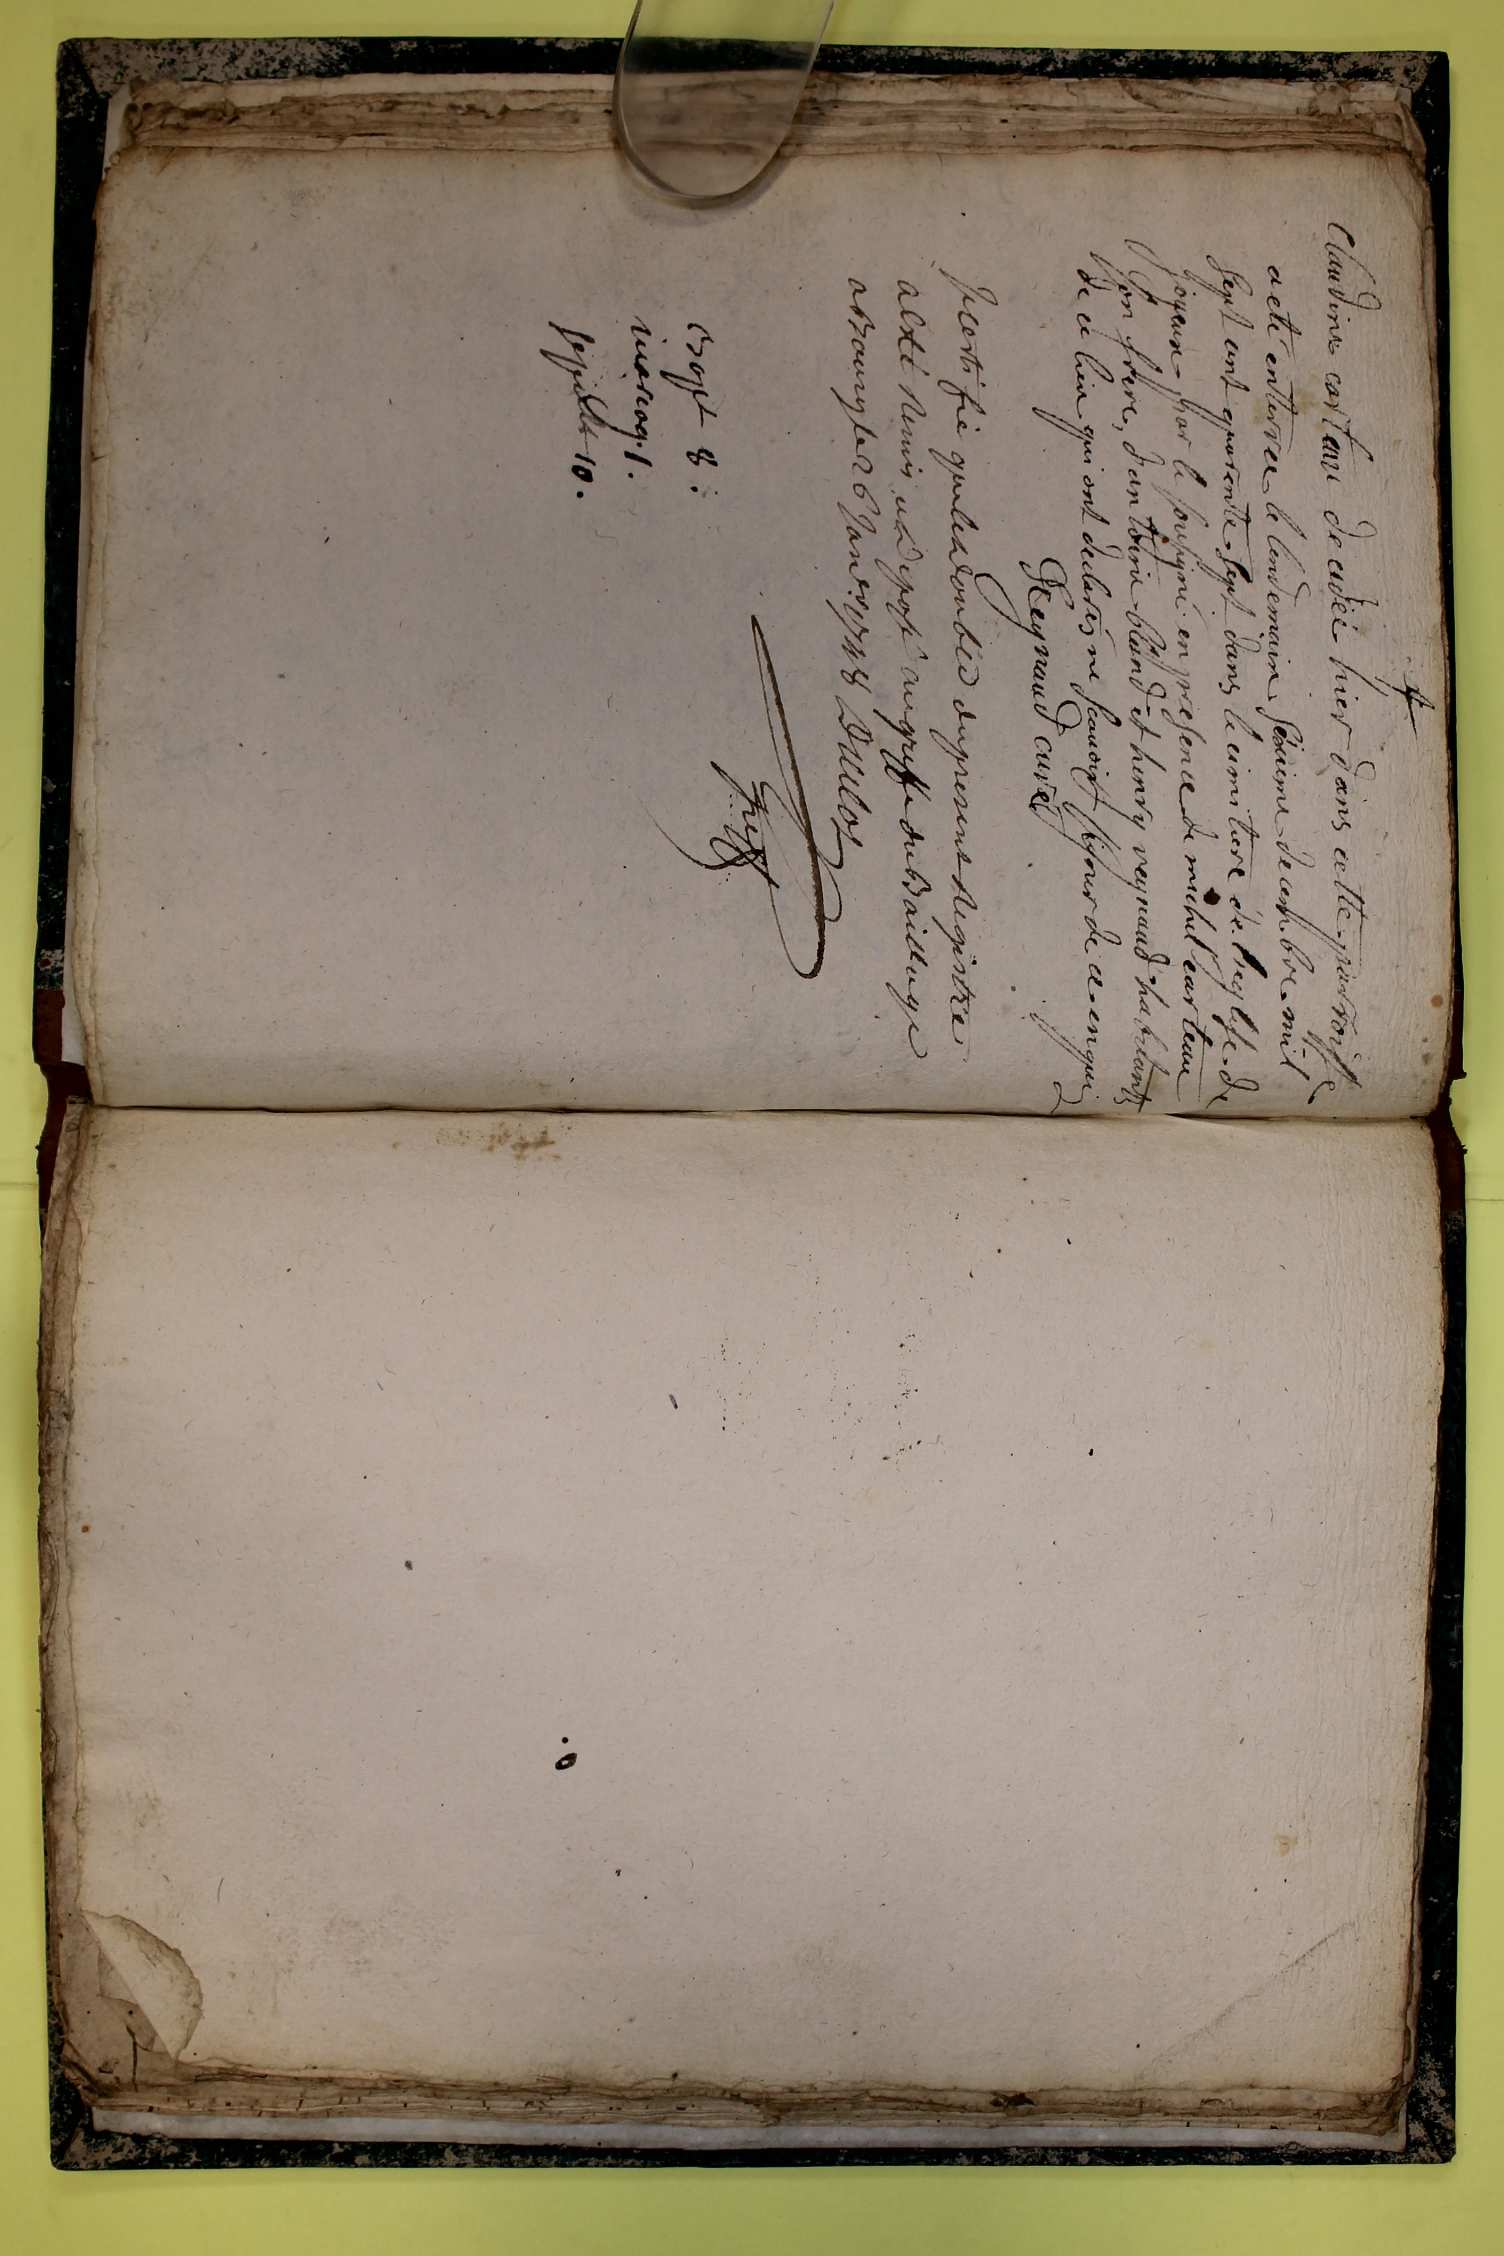 Claudine carteau decedée hier dans cette parroisse
a eté enterrée le lendemain séxieme decembre mil
sept cent quarente sept dans le cimitiere de l'heglise de
joyeux par le soussigné en presence de michel carteau
son frere, d'antoine bland et henry reynaud habitants
de ce lieu qui ont declarés ne scavoir signer de ce enquis
Reynaud curé
Je certifie que les doubles du present Registre
a esté remis et deposé au greffe du Bailliage
a Bourg le 26 Janv. 1748 Duclos
greff
Bapt 8.
mariag. 1.
sepult 10.